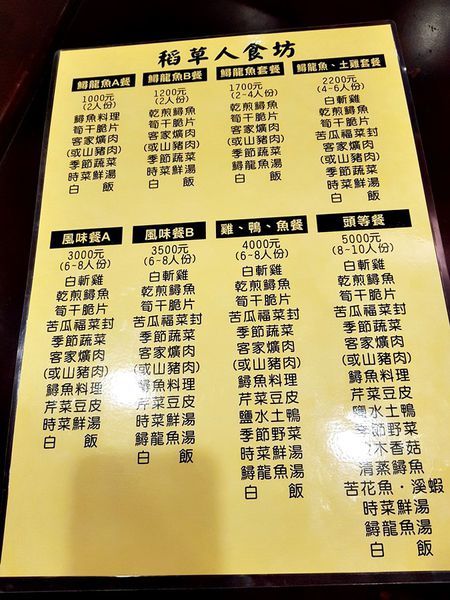 稻草人食坊
鱘龍魚A餐
1000元
(2人份)
鱘魚料理
筍干脆片
客家爌肉
(或山豬肉)
季節蔬菜
時菜鮮湯
白 飯
鱘龍魚B餐
1200元
(2人份)
乾煎鱘魚
筍干脆片
客家爌肉
(或山豬肉)
季節蔬菜
時菜鮮湯
白 飯
鱘龍魚套餐
1700元
(2-4人份)
乾煎鱘魚
筍干脆片
客家爌肉
(或山豬肉)
季節蔬菜
鱘龍魚湯
白 飯
鱘龍魚、土雞套餐
2200元
(4-6人份)
白斬雞
乾煎鱘魚
筍干脆片
苦瓜福菜封
客家爌肉
(或山豬肉)
季節蔬菜
時菜鮮湯
白 飯
風味餐A
3000元
(6-8人份)
白斬雞
乾煎鱘魚
筍干脆片
苦瓜福菜封
季節蔬菜
客家爌肉
(或山豬肉)
鱘魚料理
芹菜豆皮
時菜鮮湯
白 飯
風味餐B
3500元
(6-8人份)
白斬雞
乾煎鱘魚
筍干脆片
苦瓜福菜封
季節蔬菜
客家爌肉
(或山豬肉)
鱘魚料理
芹菜豆皮
時菜鮮湯
鱘龍魚湯
白 飯
雞、鴨、魚餐
4000元
(6-8人份)
白斬雞
乾煎鱘魚
筍干脆片
苦瓜福菜封
季節蔬菜
客家爌肉
(或山豬肉)
鱘魚料理
芹菜豆皮
鹽水土鴨
季節野菜
時菜鮮湯
鱘龍魚湯
白 飯
頭等餐
5000元
(8-10人份)
白斬雞
乾煎鱘魚
筍干脆片
苦瓜福菜封
季節蔬菜
客家爌肉
(或山豬肉)
鱘魚料理
芹菜豆皮
鹽水土鴨
季節野菜
木香菇
清蒸鱘魚
苦花魚・溪蝦
時菜鮮湯
鱘龍魚湯
白 飯